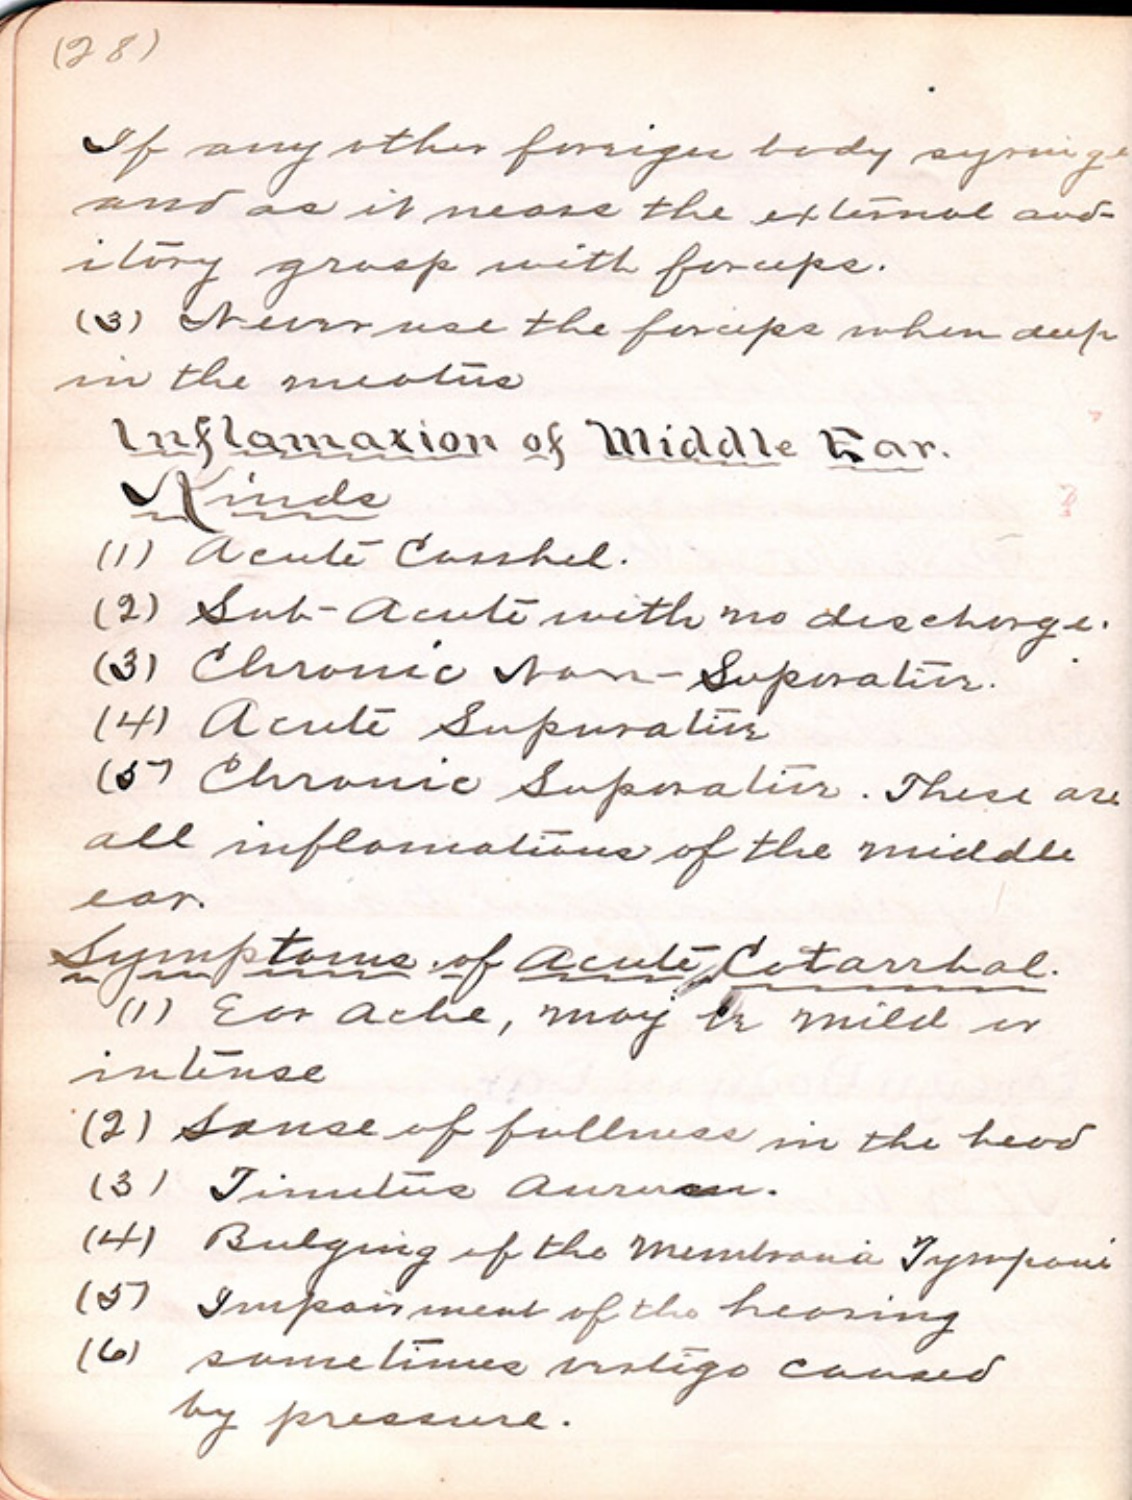 (28)
If any other foreign body syringe
and as it nears the external aud-
itory grasp with forceps.
(3) Never use the forceps when deep
in the meatus
Inflamation of Middle Ear.
Kinds
(1) Acute
(2) Sub-Acute with no discharge.
(3) Chronic Non-Supurative.
(4) Acute Supurative
(5) Chronic Supurative. These are
all inflamations of the middle
ear.
Symptoms of Acute Catarrhal.
(1) Ear Ache, may be mild or
intense
(2) Sense of fullness in the head
(3) Tinutus
(4) Bulging of the Membrania Tympani
(5) Impairment of the hearing
(6) sometimes vertigo caused
by pressure.